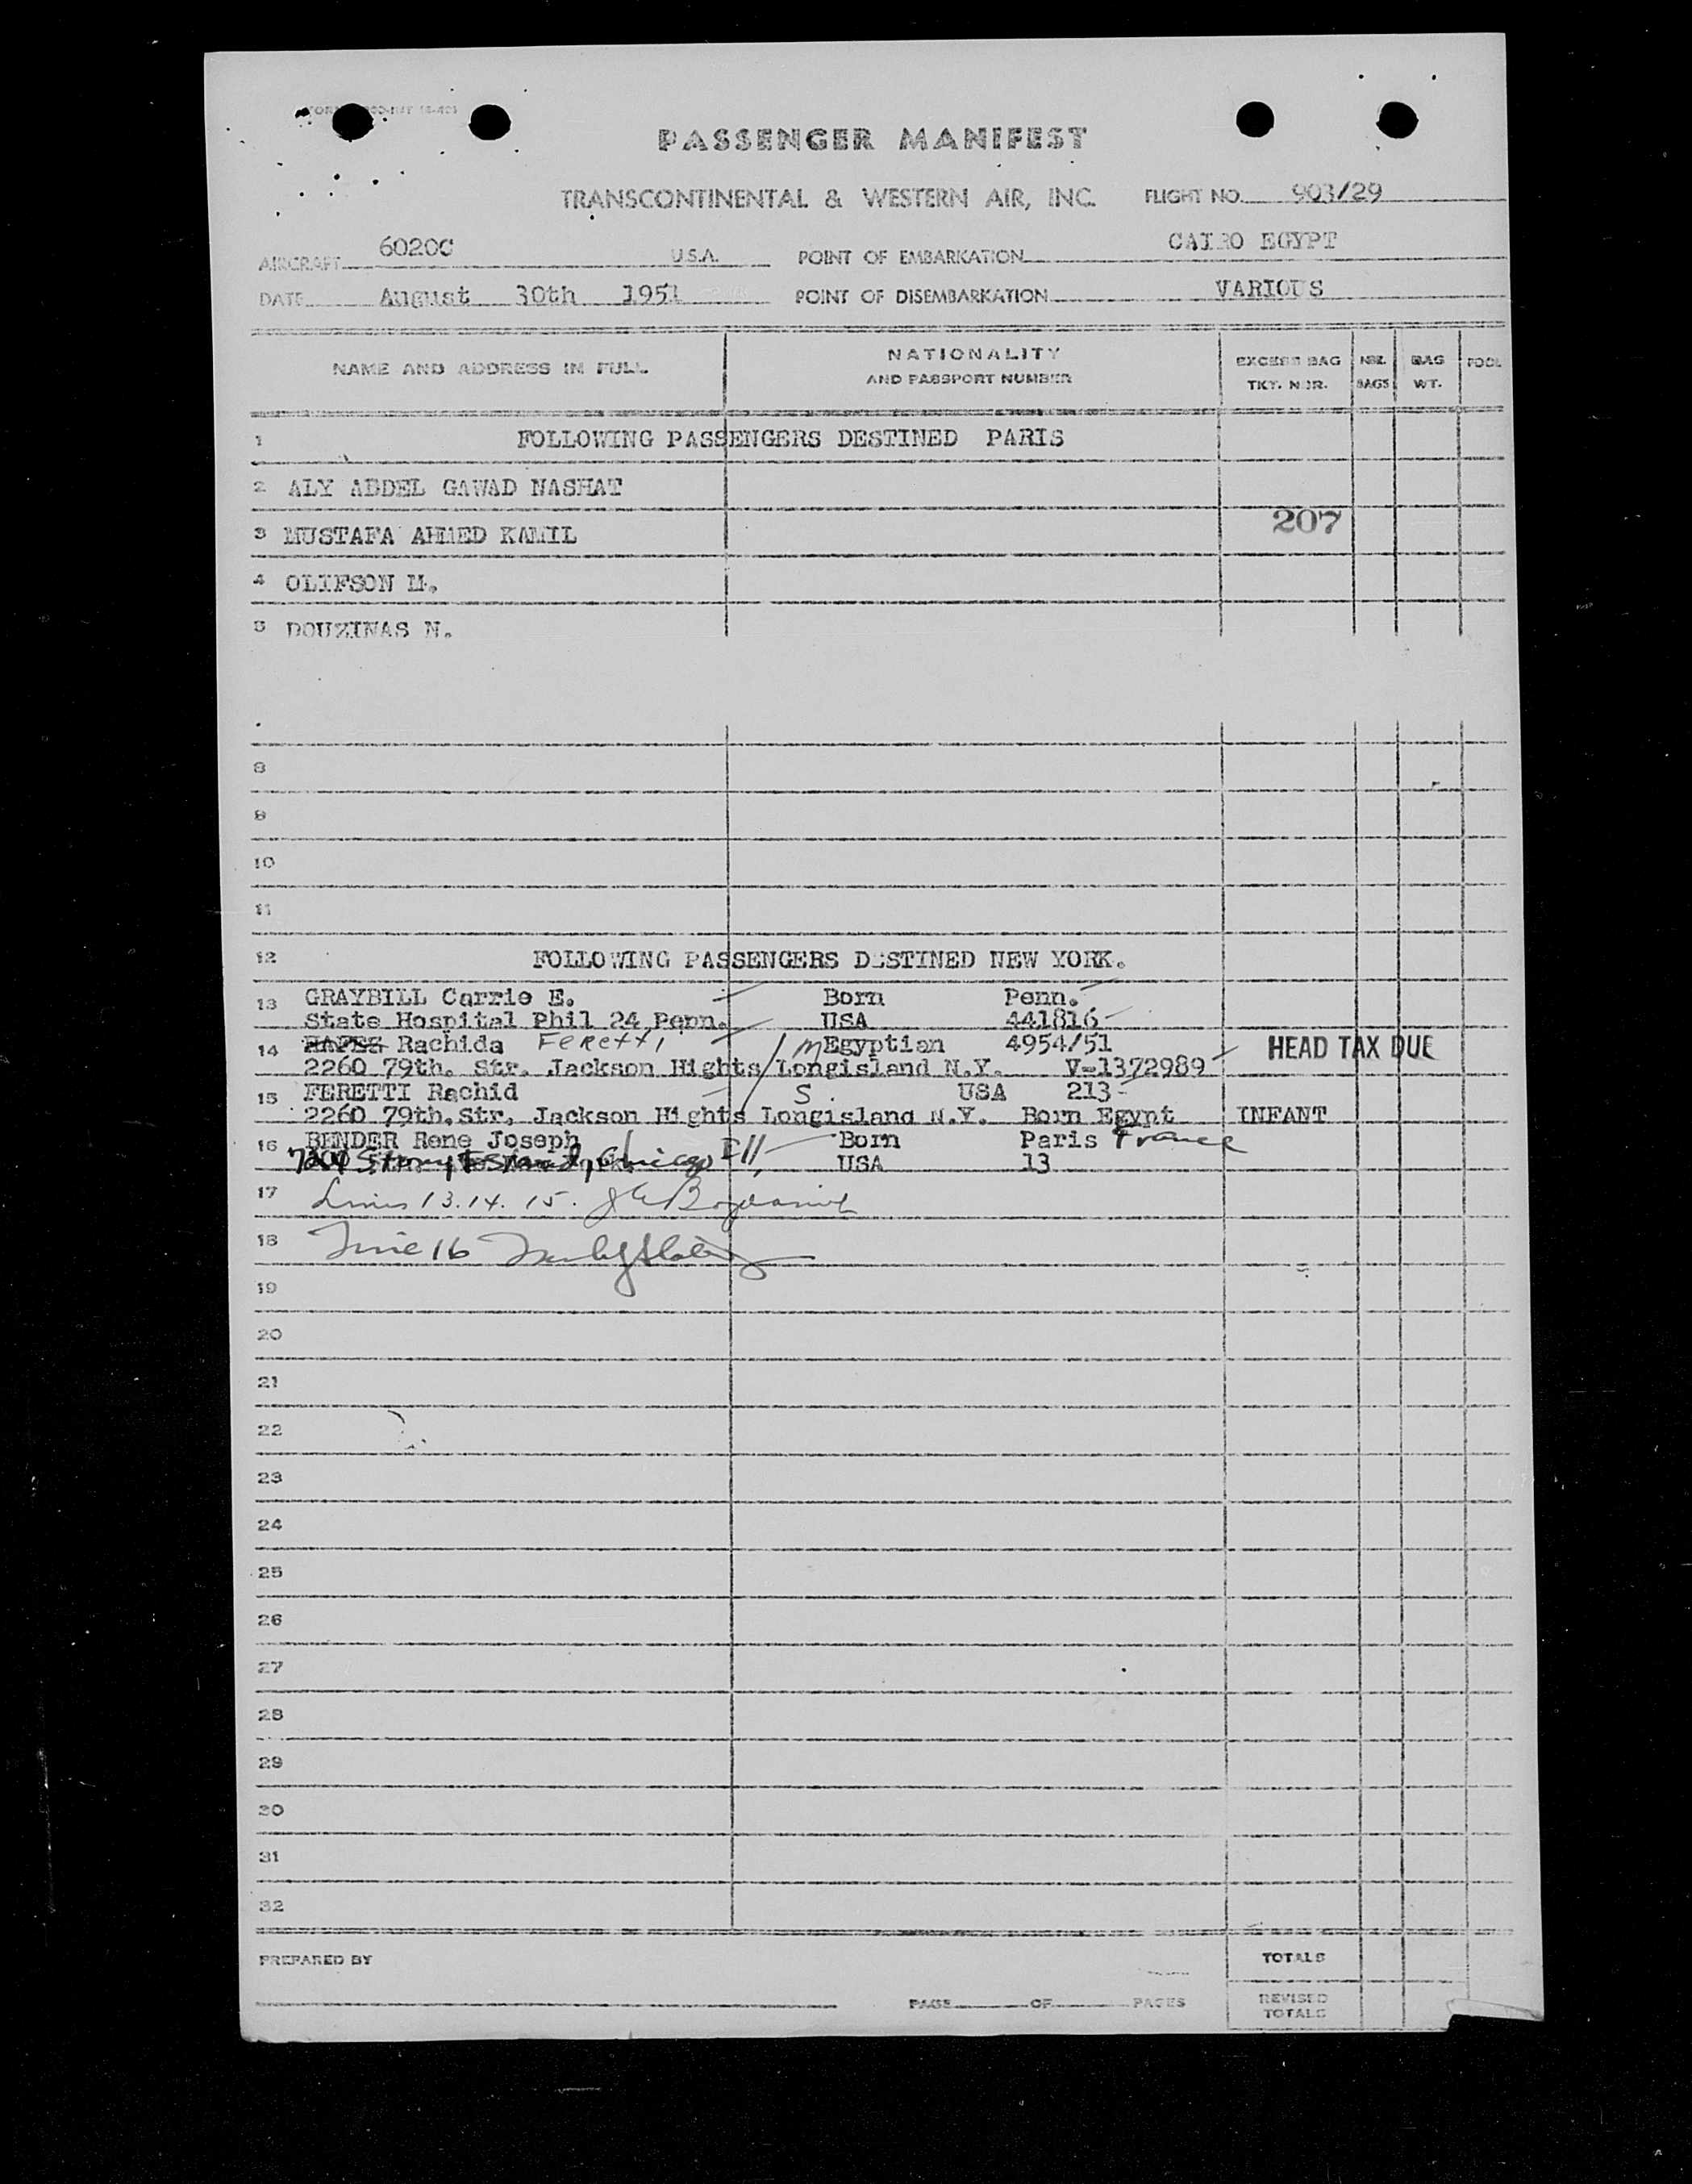 PASSENGER MANIFEST
TRANSCONTINENTAL & WESTERN AIR, INC. FLIGHT NO. 903/29
AIRCRAFT 6020C U.S.A. POINT OF EMBARKATION CAIRO EGYPT
DATE August 30th 1951 POINT OF DISEMBARKATION VARIOUS
NAME AND ADDRESS IN FULL NATIONALITY AND PASSPORT NUMBER EXCESS BAG TKT. NBR. NBR. BAGS BAG WT. POOL
1 FOLLOWING PASSENGERS DESTINED PARIS
2 ALY ABDEL GAWAD NASHAT
3 MUSTAFA AHMED KAMIL 207
4 OLIFSON M.
5 DOUZINAS N.
8
9
10
11
12 FOLLOWING PASSENGERS DESTINED NEW YORK.
13 GRAYBILL Carrie E. Born Penn.
State Hospital Phil 24 Penn. USA 441816
14 HAFEZ Rachida Feretti M Egyptian 4954/51 HEAD TAX DUE
2260 79th. Str. Jackson Hights Longisland N.Y. V-1372989
15 FERETTI Rachid S. USA 213
2260 79th.Str, Jackson Hights Longisland N.Y. Born Egypt INFANT
16 BENDER Rene Joseph Born Paris France
Chicago Ill USA 13
17 Lines 13.14.15.
18 Line 16
19
20
21
22
23
24
25
26
27
28
29
30
31
32
PREPARED BY TOTALS
PAGE OF PAGES REVISED TOTALS